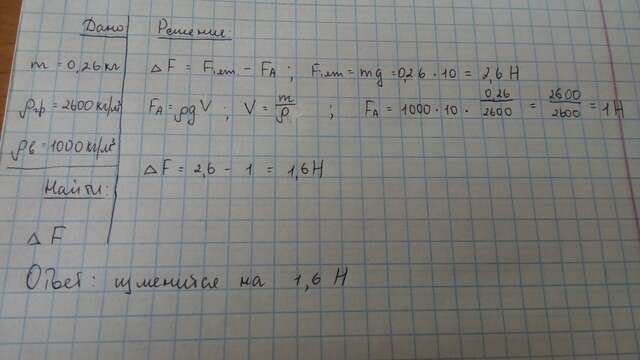 Дано
m = 0,26 кг
ρгр = 2600 кг/м³
ρв = 1000 кг/м³
Найти:
ΔF
Решение:
ΔF = Fтяж - FA ; Fтяж = mg = 0,26 · 10 = 2,6 H
FA = ρgV ; V = m/ρ ; FA = 1000 · 10 · 0,26/2600 = 2600/2600 = 1 H
ΔF = 2,6 - 1 = 1,6 H
Ответ: изменится на 1,6 H